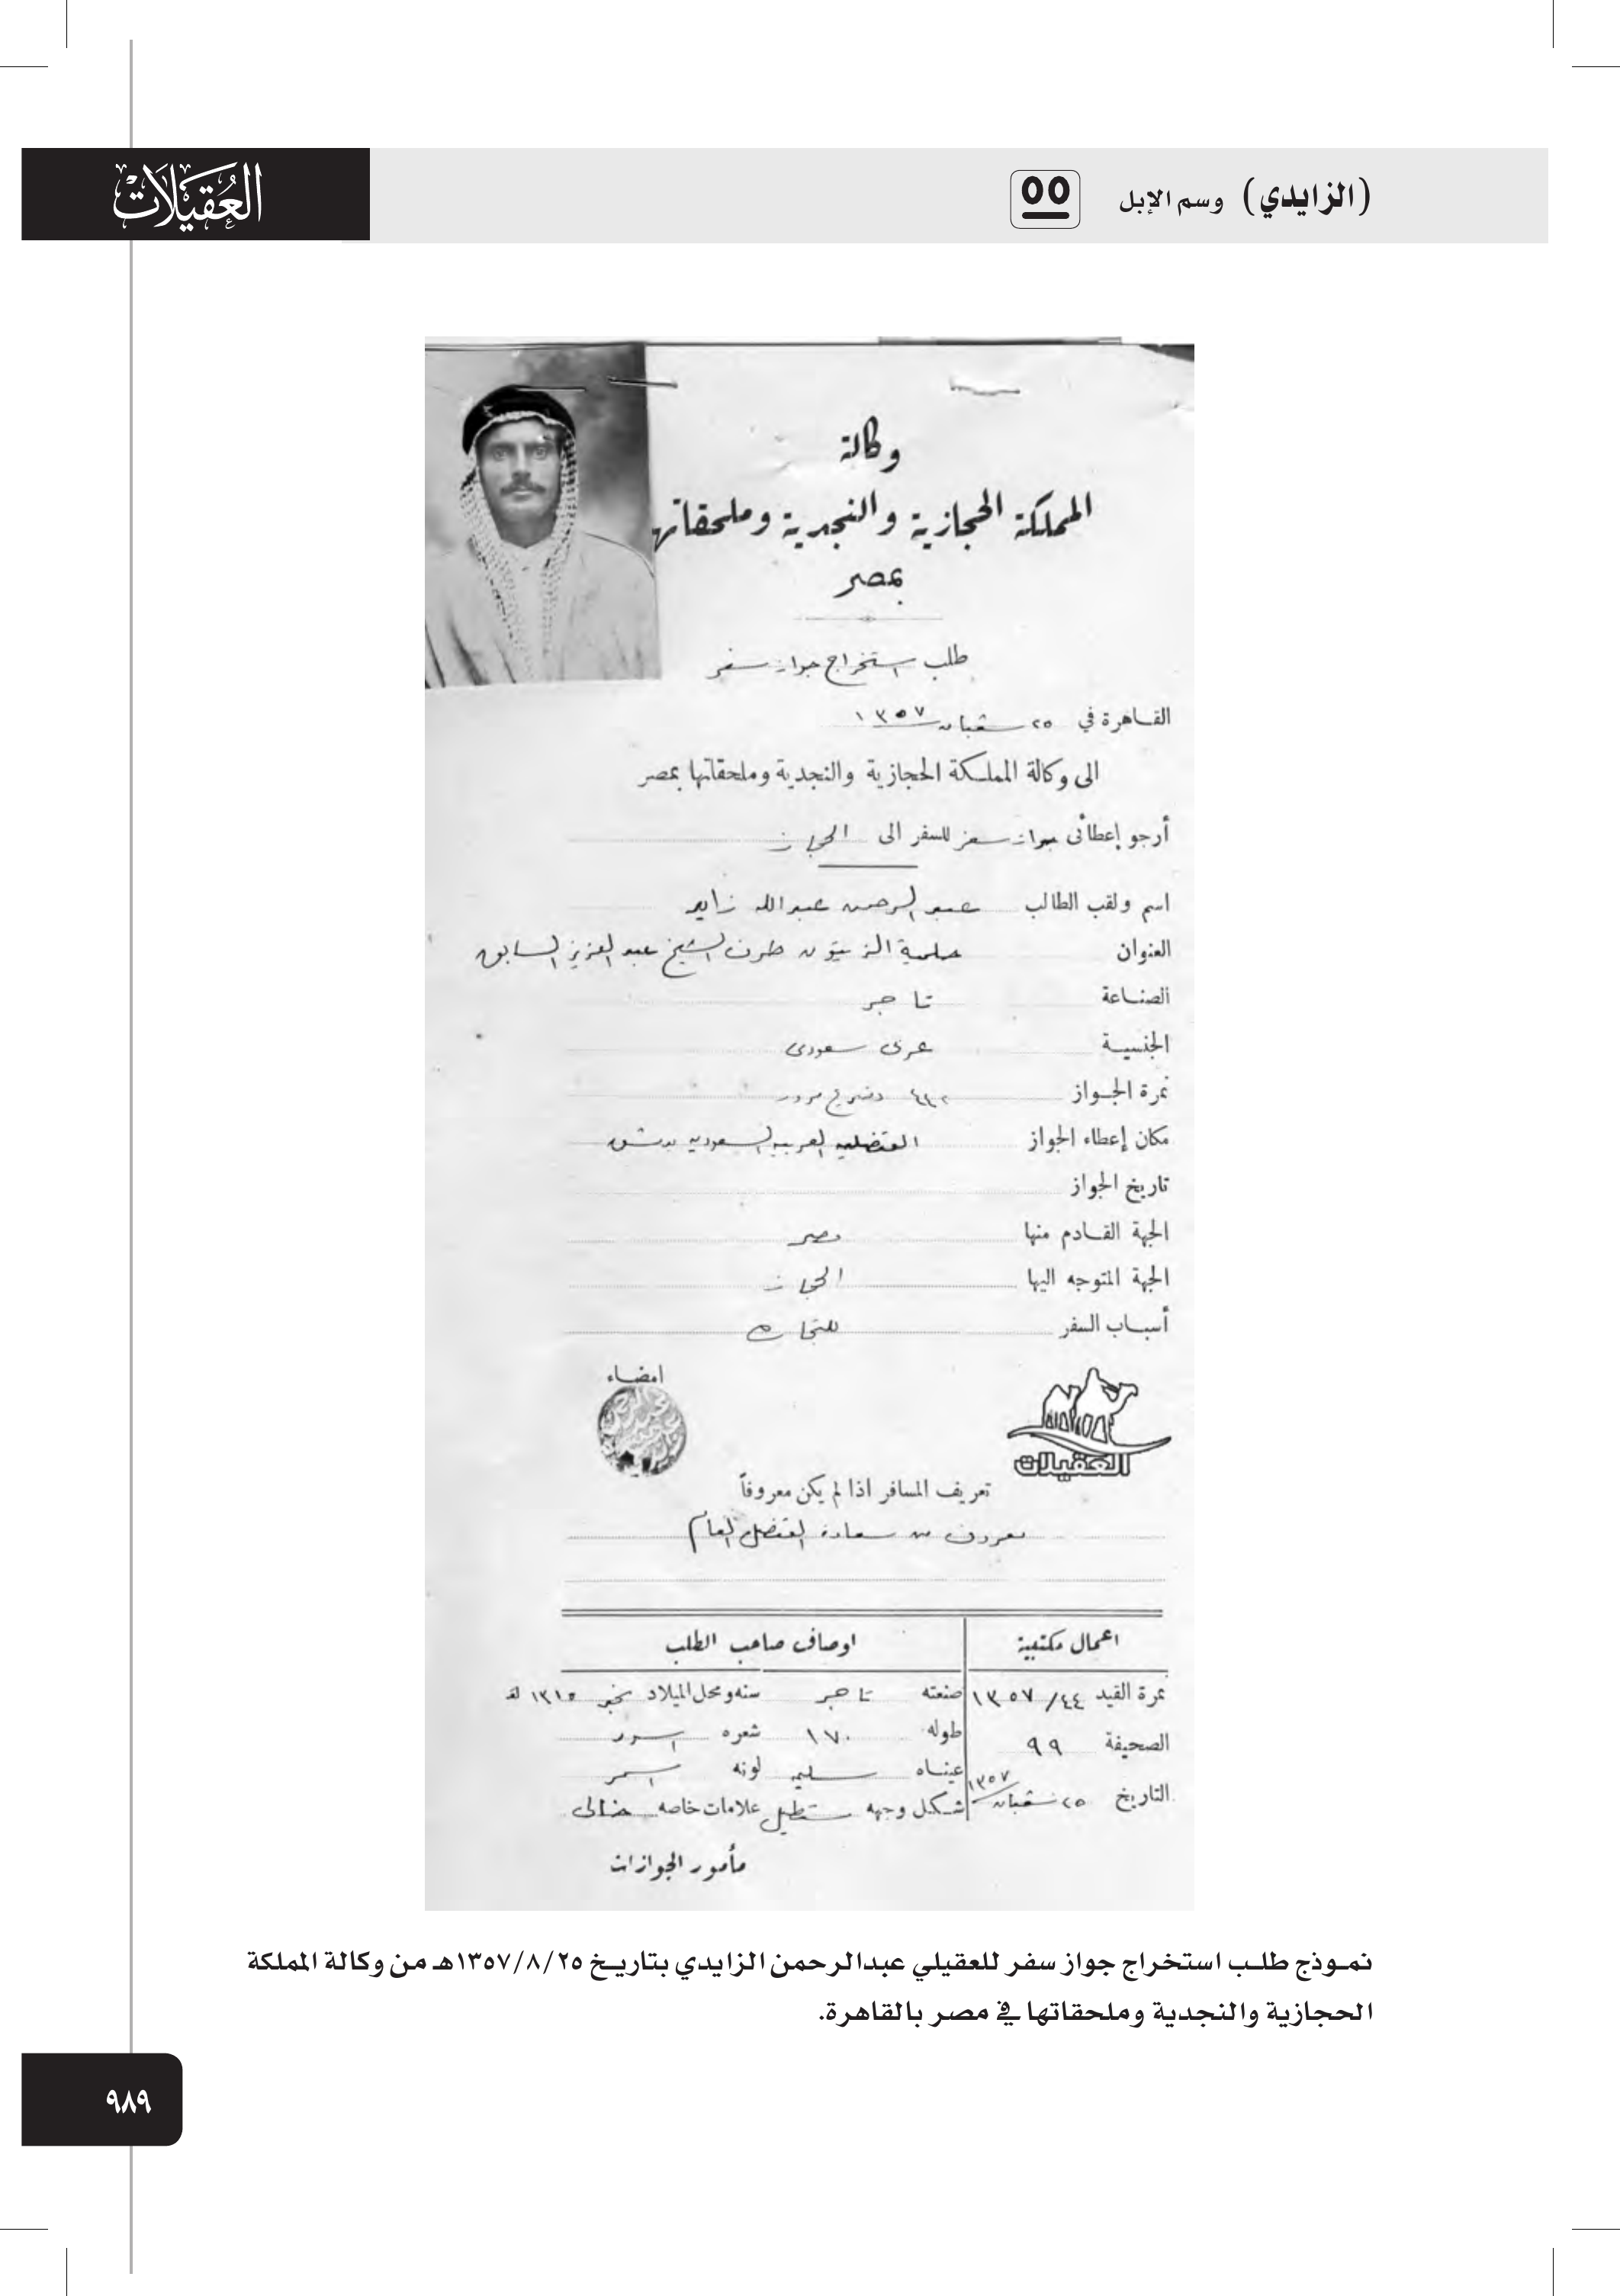 (الزايدي) وسم الإبل
العُقَيلَات
وكالة
المملكة الحجازية والنجدية وملحقاتها
بمصر
طلب استخراج جواز سفر
القاهرة في ٢٥ شعبان ١٣٥٧
الى وكالة المملكة الحجازية والنجدية وملحقاتها بمصر
أرجو إعطائى جواز سفر للسفر الى الحجاز
اسم ولقب الطالب عبد الرحمن عبد الله زايد
العنوان حلمية الزيتون طرف الشيخ عبد العزيز السابق
الصناعة تاجر
الجنسية عربى سعودى
نمرة الجواز مرور
مكان إعطاء الجواز القنصليه العربيه السعوديه بدمشق
تاريخ الجواز
الجهة القادم منها مصر
الجهة المتوجه اليها الحجاز
أسباب السفر للتجاره
امضاء
العقيلات
تعريف المسافر اذا لم يكن معروفاً
معروف من سعادة القنصل العام
اعمال مكتبية
نمرة القيد ٤٤/١٣٥٧
الصحيفة ٩٩
التاريخ ٢٥ شعبان ١٣٥٧
اوصاف صاحب الطلب
صنعته تاجر سنه ومحل الميلاد ١٣١٥
طوله ١٧٠ شعره اسود
عيناه سليم لونه اسمر
شكل وجهه مستطيل علامات خاصه خالى
مأمور الجوازات
نموذج طلب استخراج جواز سفر للعقيلي عبدالرحمن الزايدي بتاريخ ١٣٥٧/٨/٢٥هـ من وكالة المملكة
الحجازية والنجدية وملحقاتها في مصر بالقاهرة.
٩٨٩